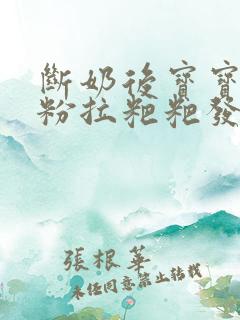 斷奶後寶寶
粉拉粑粑發
張根華
未經同意禁止转載